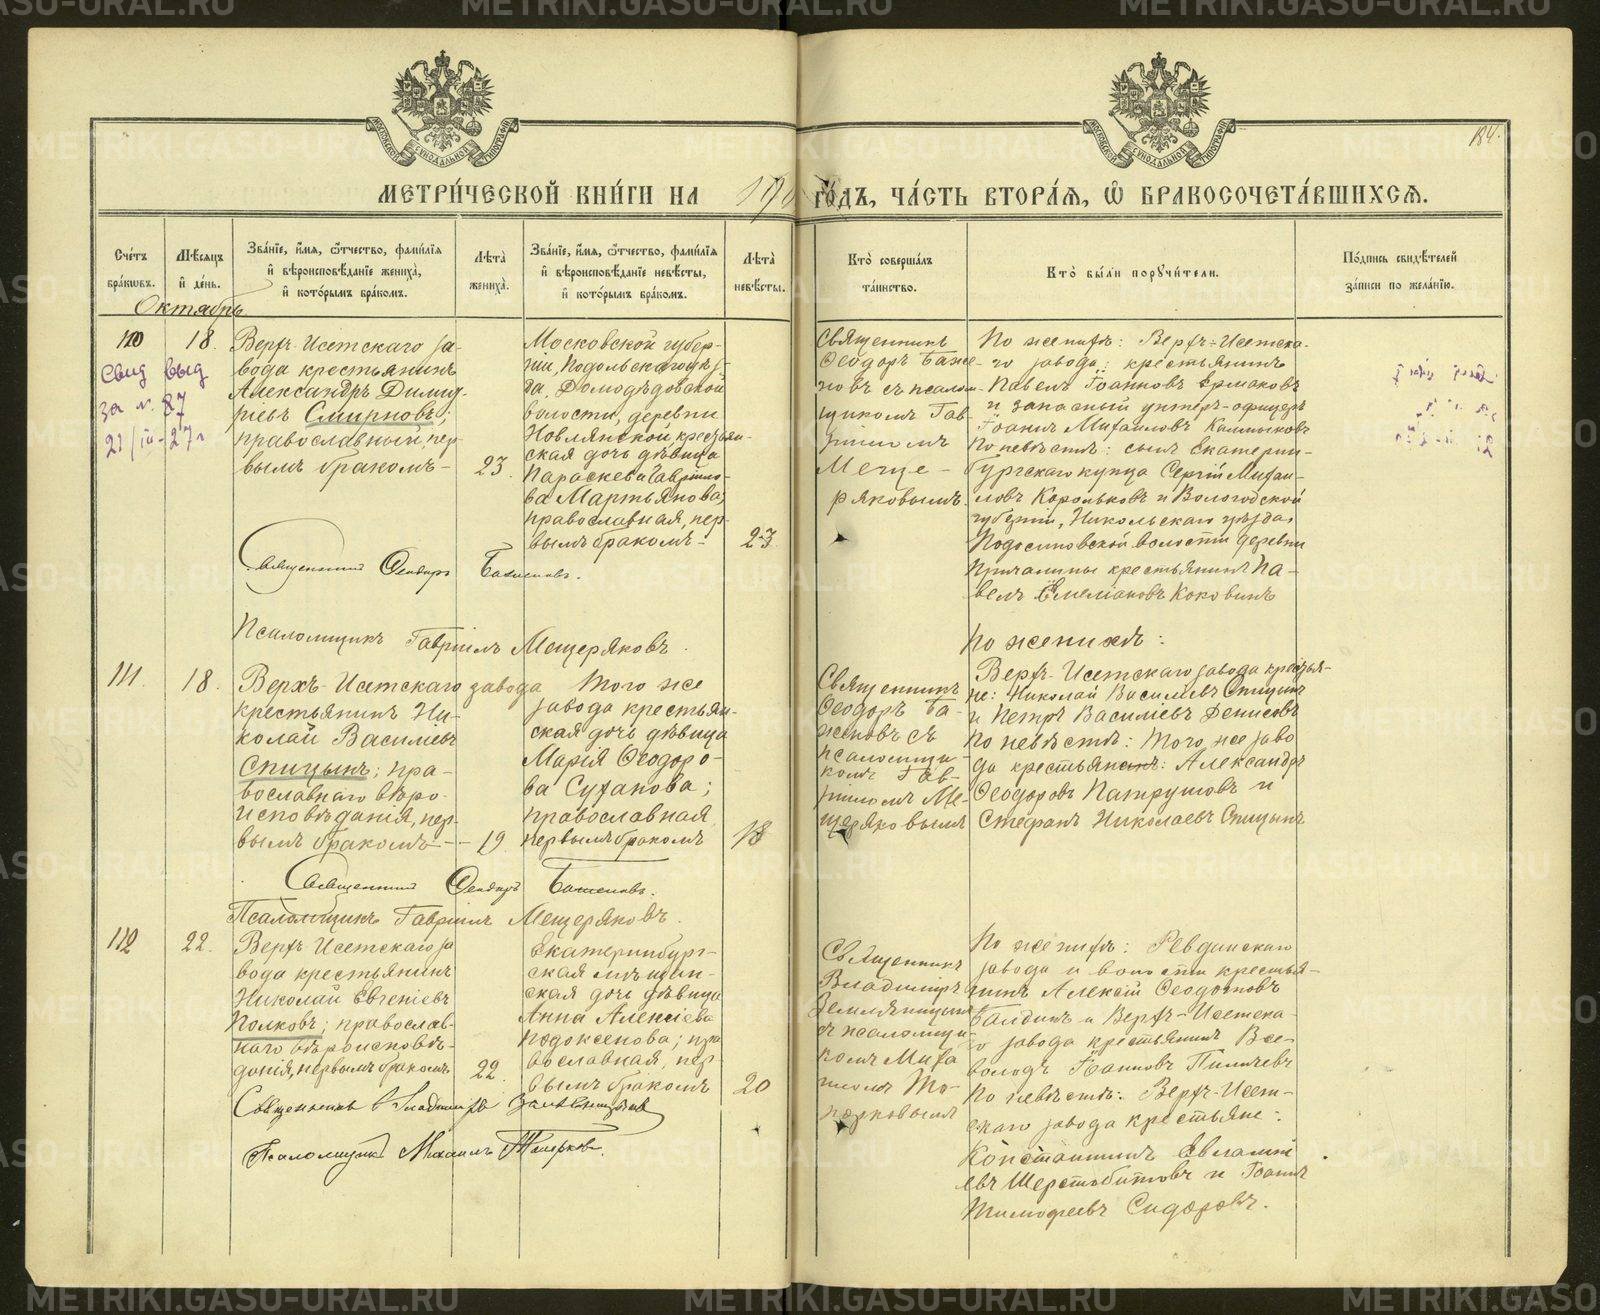 184.
МЕТРИ́ЧЕСКОЙ КНИ́ГИ НА 190 ГО́ДЪ, ЧА́СТЬ ВТОРА́Я, Ѿ БРАКОСОЧЕТА́ВШИХСЯ.
Сче́тъ бра́кѡвъ.
Мѣ́сяцъ и҆ де́нь.
Зва́нїе, и҆́мя, ѻ҆́тчество, фами́лїя и҆ вѣроисповѣ́данїе жениха̀, и҆ кото́рымъ бра́комъ.
Лѣ́та жениха̀.
Зва́нїе, и҆́мя, ѻ҆́тчество, фами́лїя и҆ вѣроисповѣ́данїе невѣ́сты, и҆ кото́рымъ бра́комъ.
Лѣ́та невѣ́сты.
Кто̀ соверша́лъ та́инство.
Кто̀ бы́ли поручи́тели.
По́дпись свидѣ́телей за́писи по жела́нїю.
Октябрь
110
18.
Свид выд
за №. 87
21/III-27г
Верхъ-Исетскаго за-
вода крестьянинъ
Александръ Димит-
рiевъ Смирновъ;
православный, пер-
вымъ бракомъ-
23.
Московской губер-
нiи, Подольскаго уѣз-
да, Домодѣдовской
волости, деревни
Новлянской, крестьян-
ская дочь дѣвица
Параскева Гаврiило-
ва Мартьянова;
православная, пер-
вымъ бракомъ-
23.
Священникъ
Ѳеодоръ Баже-
новъ съ псалом-
щикомъ Гав-
рiиломъ
Меще-
ряковымъ.
По женихѣ: Верхъ-Исетска-
го завода: крестьянинъ
Павелъ Iоанновъ Ермаковъ
и запасный унтеръ-офицеръ
Iоаннъ Михаиловъ Калмыковъ
По невѣстѣ: сынъ Екатерин-
бургскаго купца Сергiй Михаи-
ловъ Корольковъ и Вологодской
губернiи, Никольскаго уѣзда,
Подосиновской волости деревни
Причалины крестьянинъ Па-
велъ Емелiановъ Коковинъ
Священникъ Ѳеодоръ Баженовъ.
Псаломщикъ Гаврiилъ Мещеряковъ.
111.
18.
Верхъ-Исетскаго завода
крестьянинъ Ни-
колай Василiевъ
Спицынъ; пра-
вославнаго вѣро-
исповѣданiя, пер-
вымъ бракомъ--
19.
Того же
завода крестьян-
ская дочь дѣвица
Марiя Ѳеодоро-
ва Суханова;
православная
первымъ бракомъ
18
Священникъ
Ѳеодоръ Ба-
женовъ съ
псаломщи-
комъ Гав-
рiиломъ Ме-
щеряковымъ
По женихѣ:
Верхъ-Исетскаго завода крестья-
не: Николай Василiевъ Спицынъ
и Петръ Василiевъ Денисовъ
По невѣстѣ: Того же заво
да крестьянинъ: Александръ
Ѳеодоровъ Патрушовъ и
Стефанъ Николаевъ Спицынъ
Священникъ Ѳеодоръ Баженовъ.
Псаломщикъ Гаврiилъ Мещеряковъ.
112
22.
Верхъ Исетскаго за
вода крестьянинъ
Николай Евгенiевъ
Полковъ; православ-
наго вѣроисповѣ-
данiя, первымъ бракомъ
22.
Екатеринбург-
ская мѣщан-
ская дочь дѣвица
Анна Алексiева
Подоксенова; пра
вославная, пер-
вымъ бракомъ
20
Священникъ
Владимiръ
Земляницынъ
съ псаломщи-
комъ Миха
иломъ То-
порковымъ
По женихѣ: Ревдинскаго
завода и волости крестья-
нинъ Алексiй Ѳеодотовъ
Балдинъ и Верхъ-Исетска-
го завода крестьянинъ Все-
володъ Iоанновъ Пиличевъ
По невѣстѣ: Верхъ-Исет-
скаго завода крестьяне:
Константинъ Евлампi
евъ Шерстобитовъ и Iоаннъ
Тимофеевъ Сидоровъ.
Священникъ Владимiръ Земляницынъ
Псаломщикъ Михаилъ Топорковъ.
METRIKI.GASO-URAL.RU